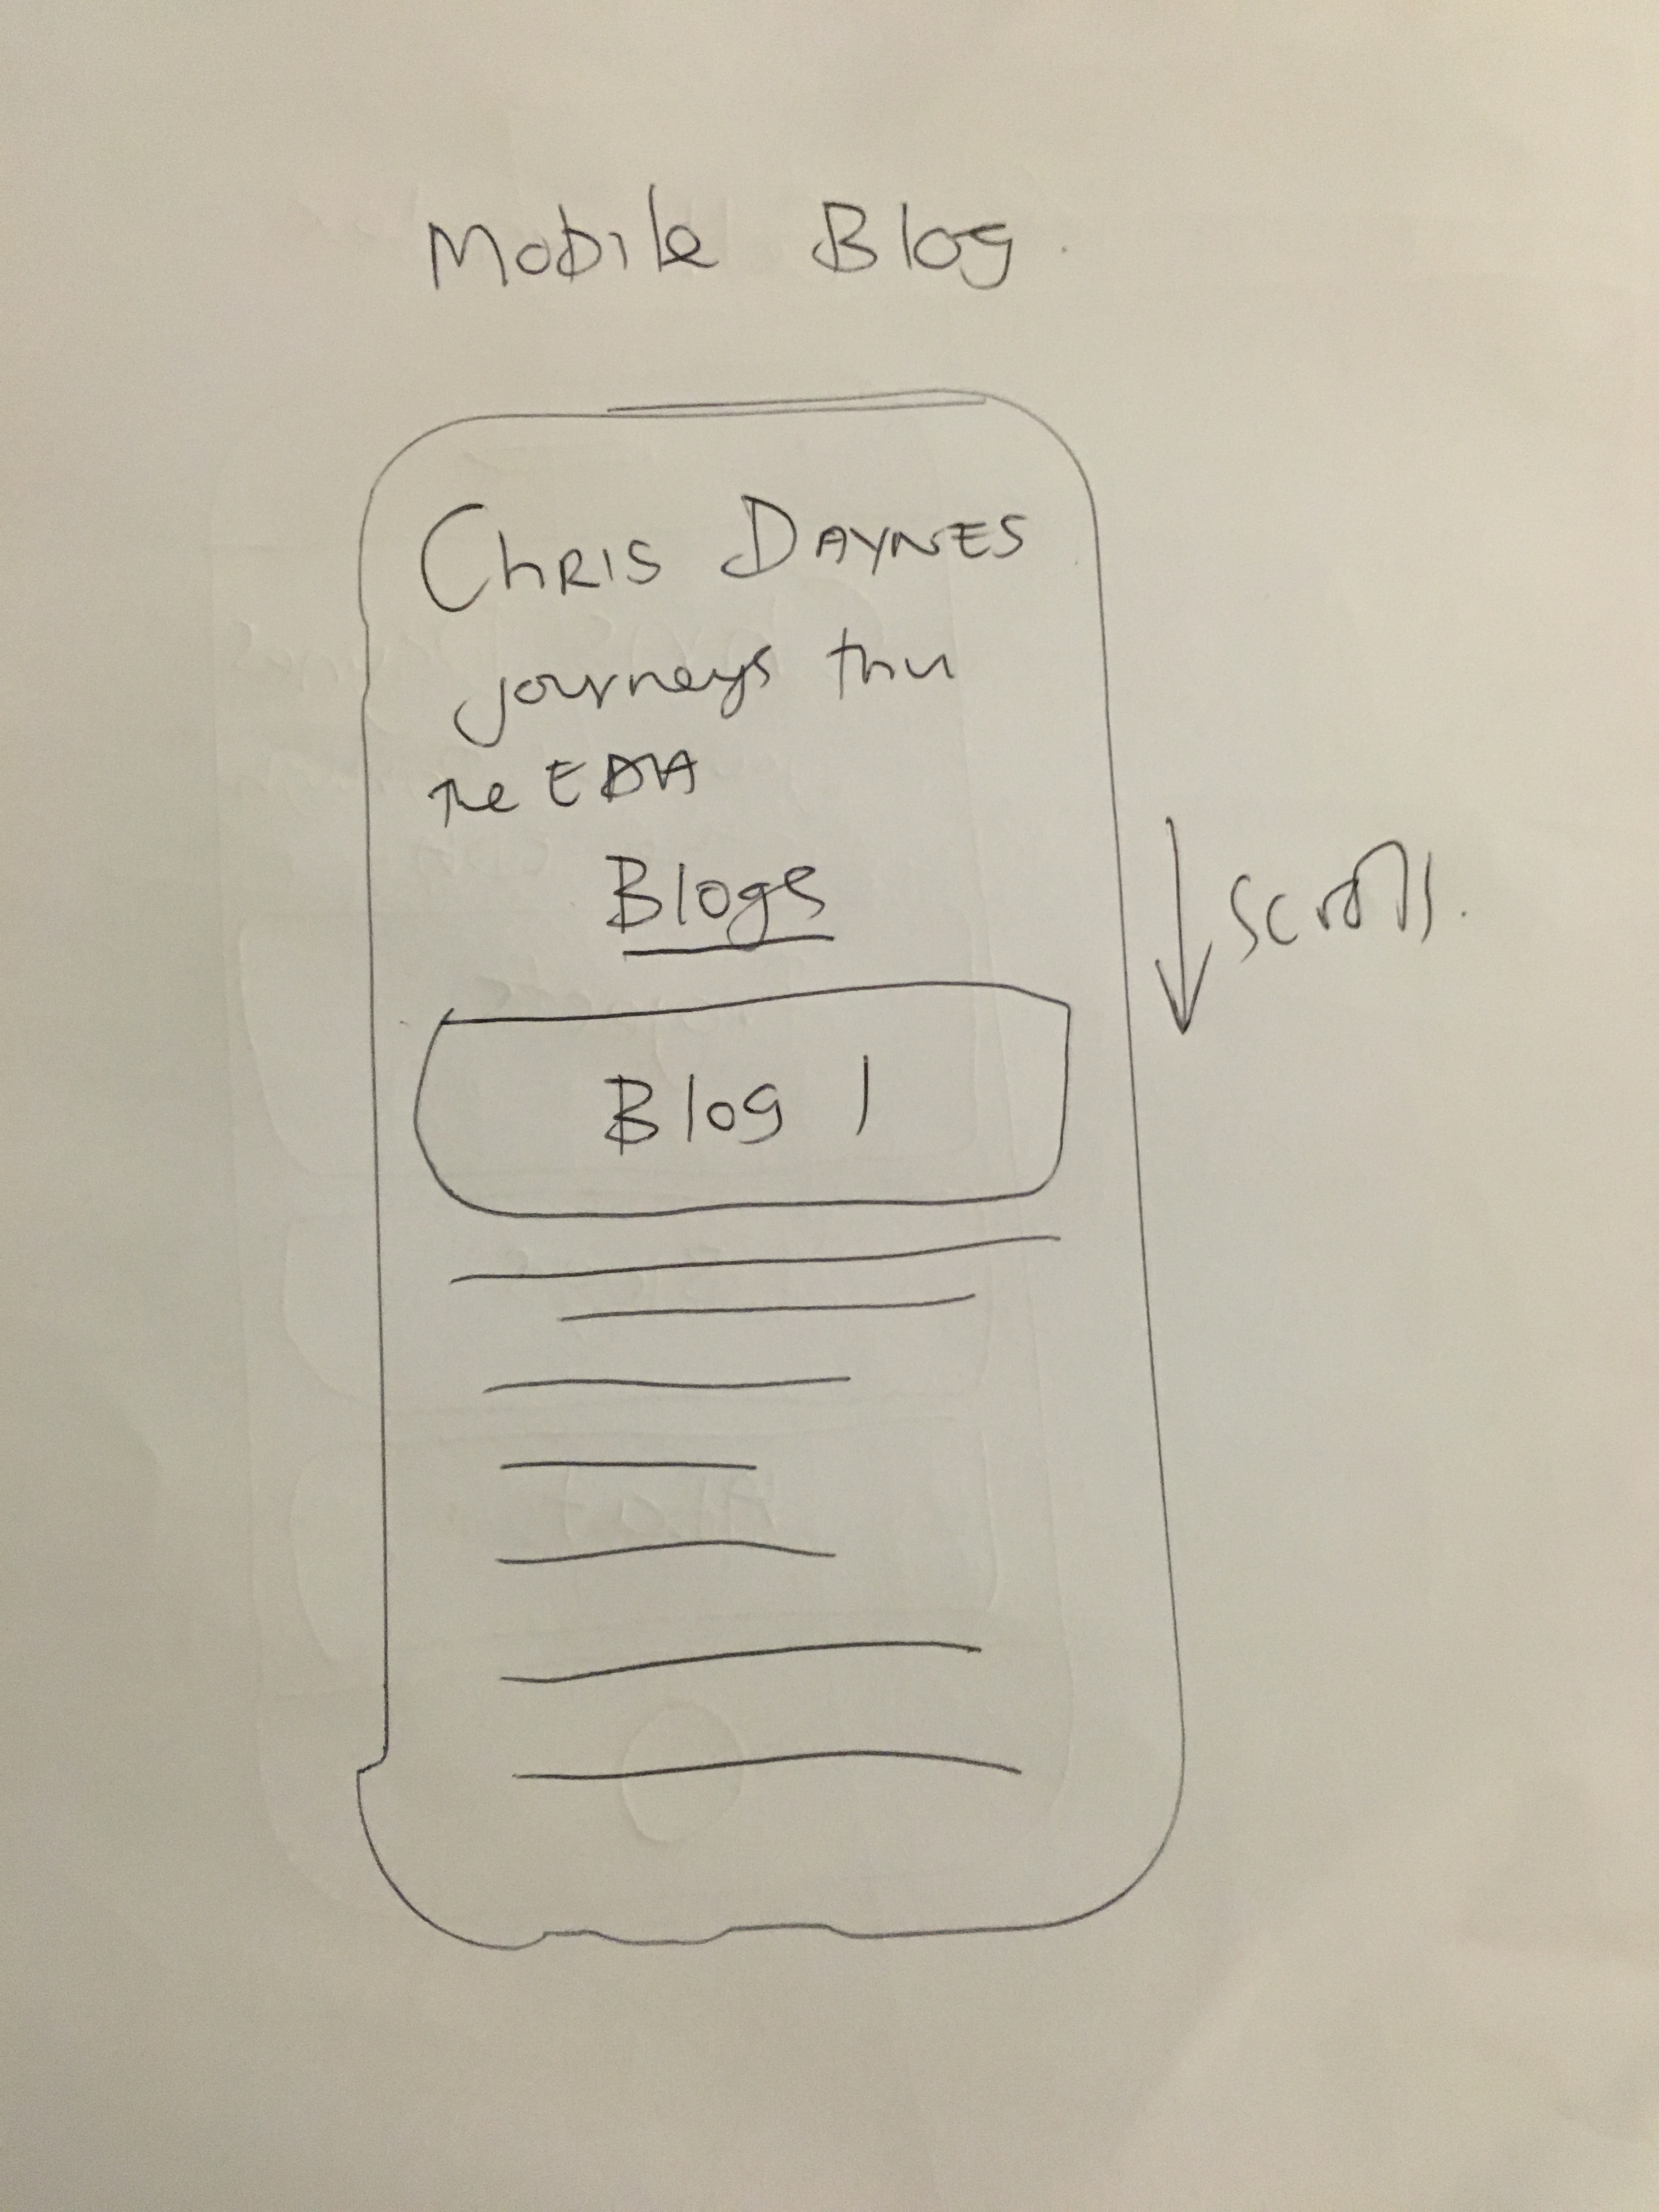 Mobile Blog
Chris DAYNES
journeys thru
the EDA
Blogs
scrolls.
Blog 1